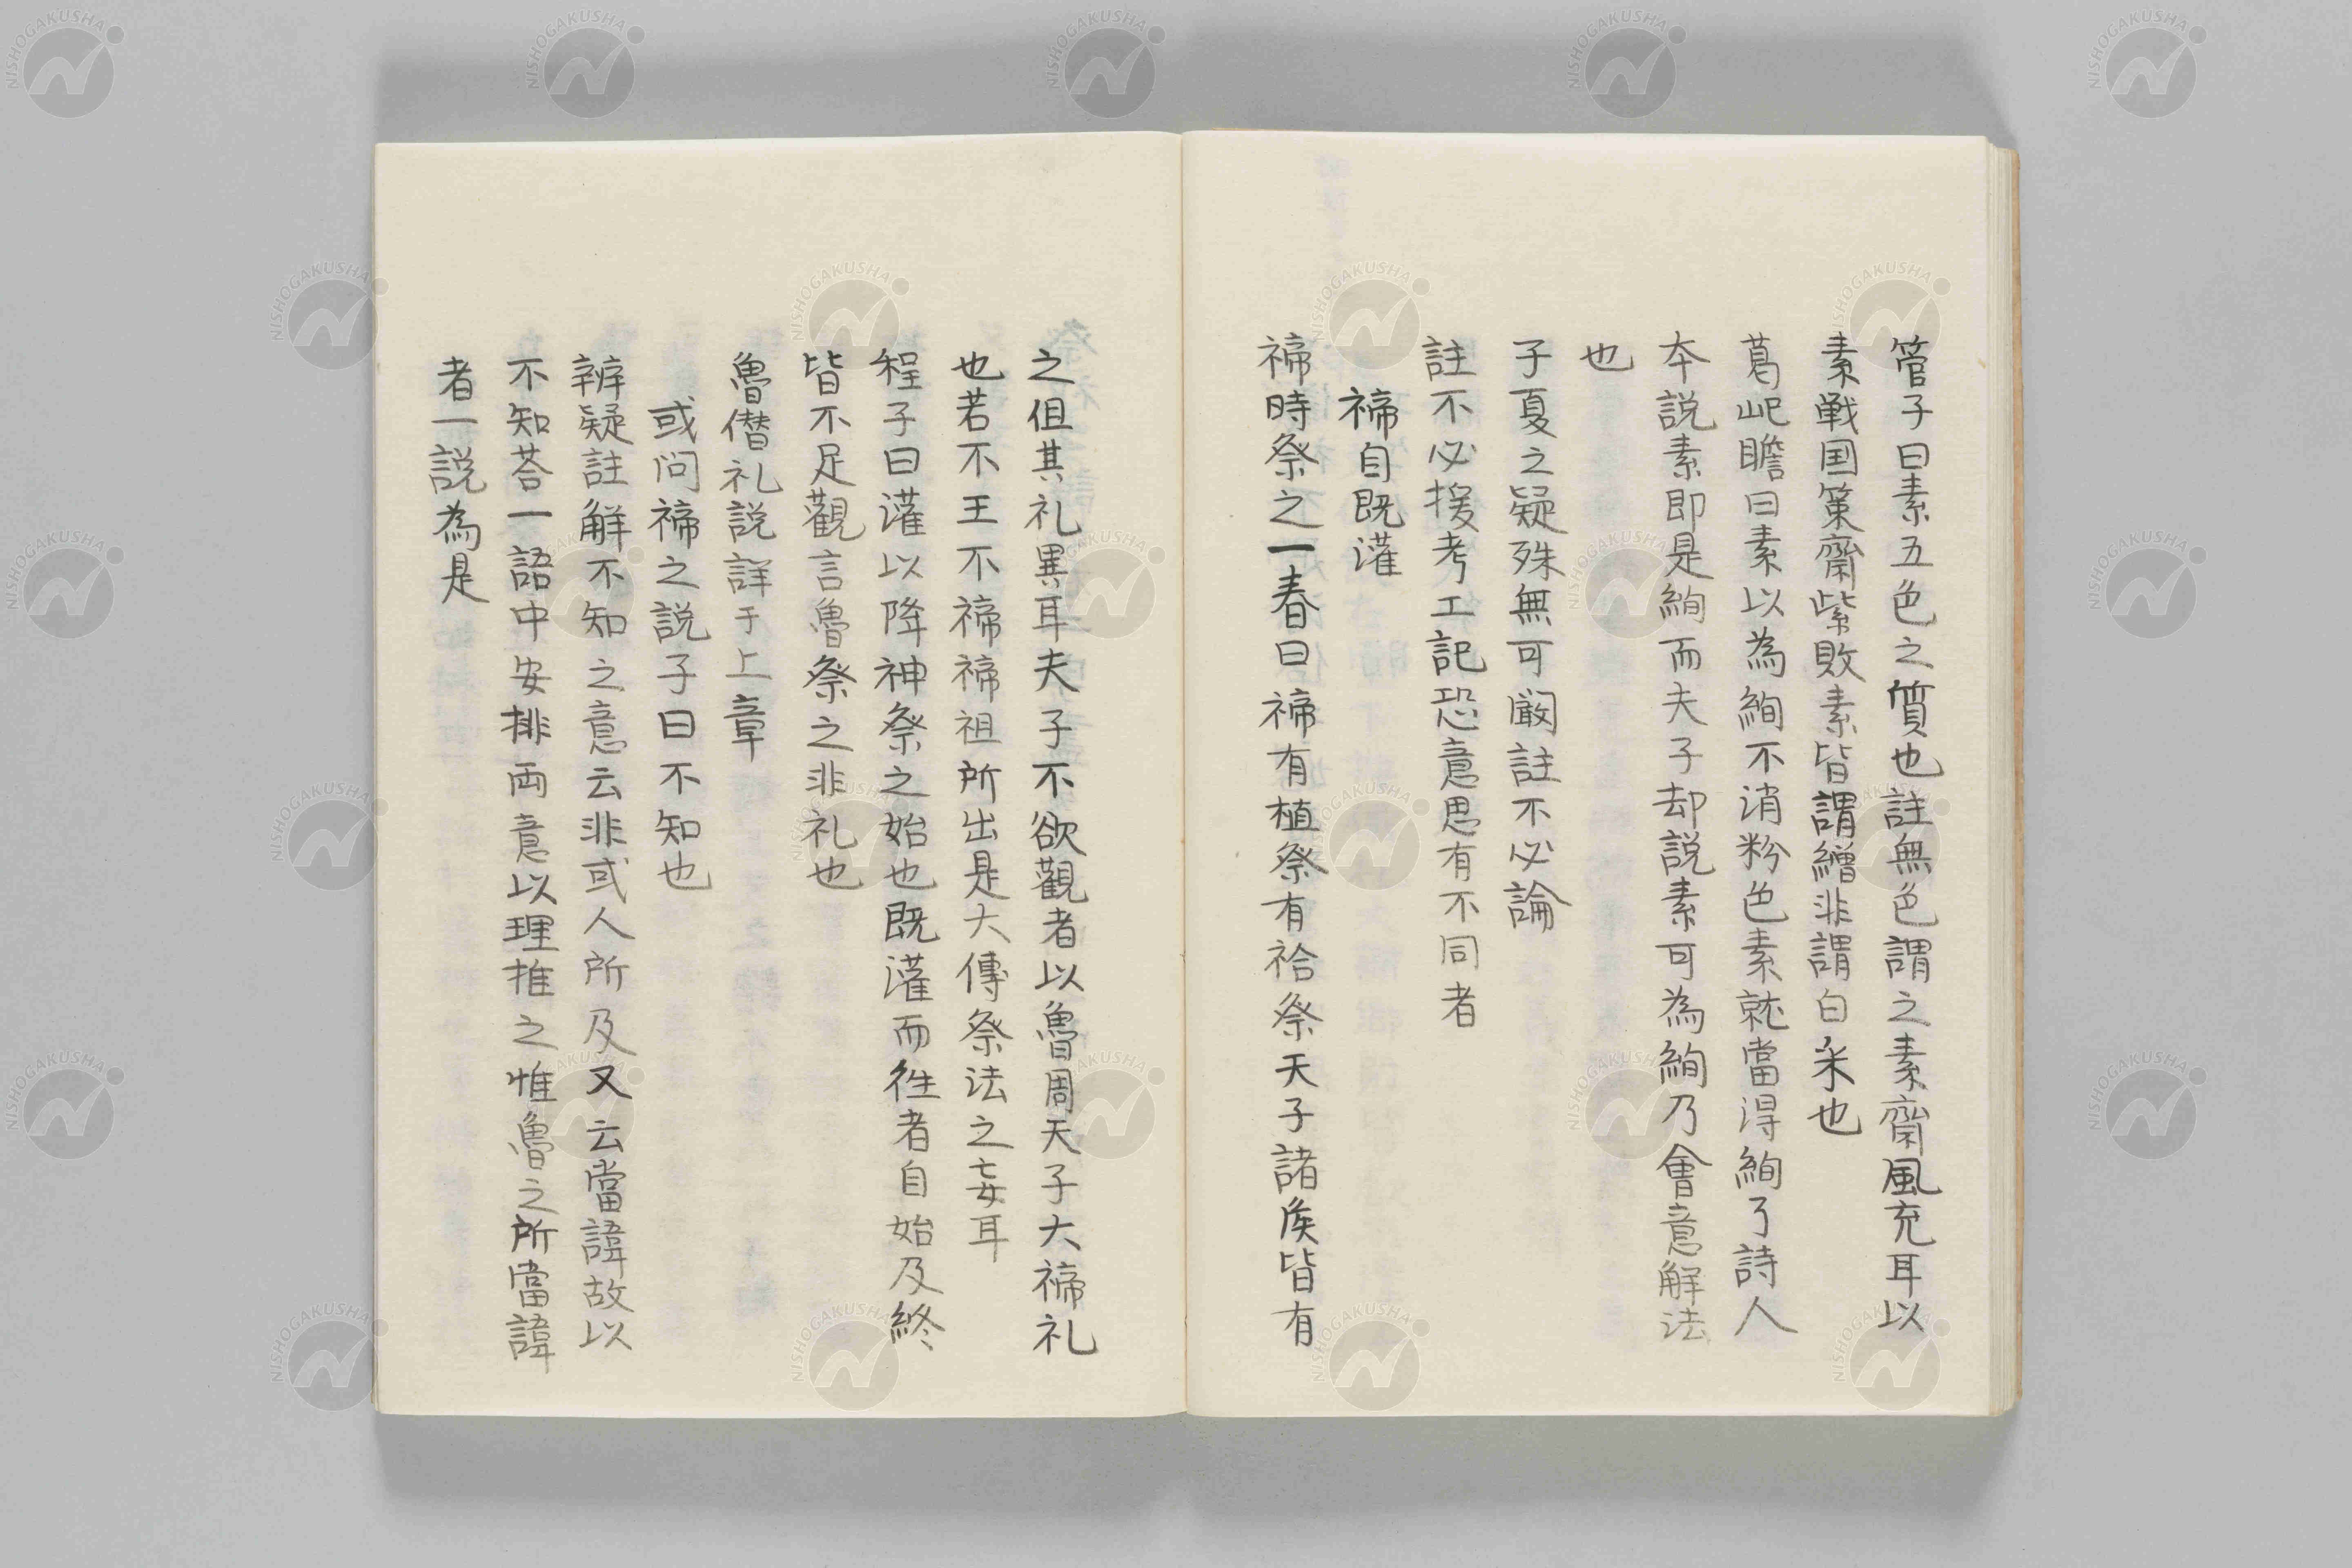 管子曰素五色之質也註無色謂之素齋風充耳以
素戦国策齋紫敗素皆謂繒非謂白采也
葛屺瞻曰素以為絢不消粉色素就當淂絢了詩人
夲説素即是絢而夫子却説素可為絢乃會意解法
也
子夏之疑殊無可闞註不必論
註不必援考工記恐意思有不同者
禘自既灌
禘時祭之一春曰禘有植祭有祫祭天子諸侯皆有
之但其礼異耳夫子不欲觀者以魯周天子大禘礼
也若不王不禘禘祖所出是大傳祭法之妄耳
程子曰灌以降神祭之始也既灌而徃者自始及終
皆不足觀言魯祭之非礼也
魯僣礼説詳于上章
或问禘之説子曰不知也
辨疑註解不知之意云非或人所及又云當諱故以
不知荅一語中安排両意以理推之惟魯之所當諱
者一説為是
NISHOGAKUSHA